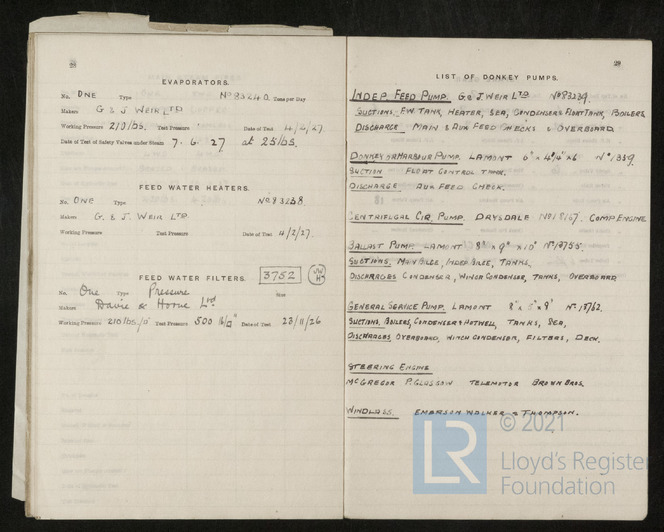 28
EVAPORATORS.
No. ONE Type No 83240 Tons per Day
Makers G & J WEIR LTD
Working Pressure 210 lbs. Test Pressure Date of Test 4/2/27.
Date of Test of Safety Valves under Steam 7. 6. 27 at 25 lbs.
FEED WATER HEATERS.
No. ONE Type No 83238
Makers G. & J. WEIR LTD.
Working Pressure Test Pressure Date of Test 4/2/27.
FEED WATER FILTERS. 3752
No. One Type Pressure Size
Makers Davie & Horne Ltd
Working Pressure 210 lbs/□" Test Pressure 500 lb/□" Date of Test 23/11/26
29
LIST OF DONKEY PUMPS.
INDEP. FEED PUMP. G & J. WEIR LTD. No 83239.
SUCTIONS. F.W. TANK, HEATER, SEA, CONDENSER & FLOAT TANK, BOILERS
DISCHARGE MAIN & AUX FEED CHECKS & OVERBOARD
DONKEY OR HARBOUR PUMP. LAMONT
SUCTION FLOAT CONTROL TANK.
DISCHARGE AUX FEED CHECK.
CENTRIFUGAL CIR. PUMP. DRYSDALE COMP ENGINE
BALLAST PUMP. LAMONT 8" x 9" x 10" No 18755.
SUCTIONS, MAIN BILGE, INDEP BILGE, TANKS.
DISCHARGES CONDENSER, WINCH CONDENSER, TANKS, OVERBOARD
GENERAL SERVICE PUMP. LAMONT 8" x 5" x 8" No. 18762.
SUCTIONS, BOILERS, CONDENSER & HOTWELL, TANKS, SEA,
DISCHARGES OVERBOARD, WINCH CONDENSER, FILTERS, DECK.
STEERING ENGINE
McGREGOR P. GLASGOW TELEMOTOR BROWN BROS.
WINDLASS. EMERSON WALKER & THOMPSON.
© 2021
LR Lloyd's Register
Foundation